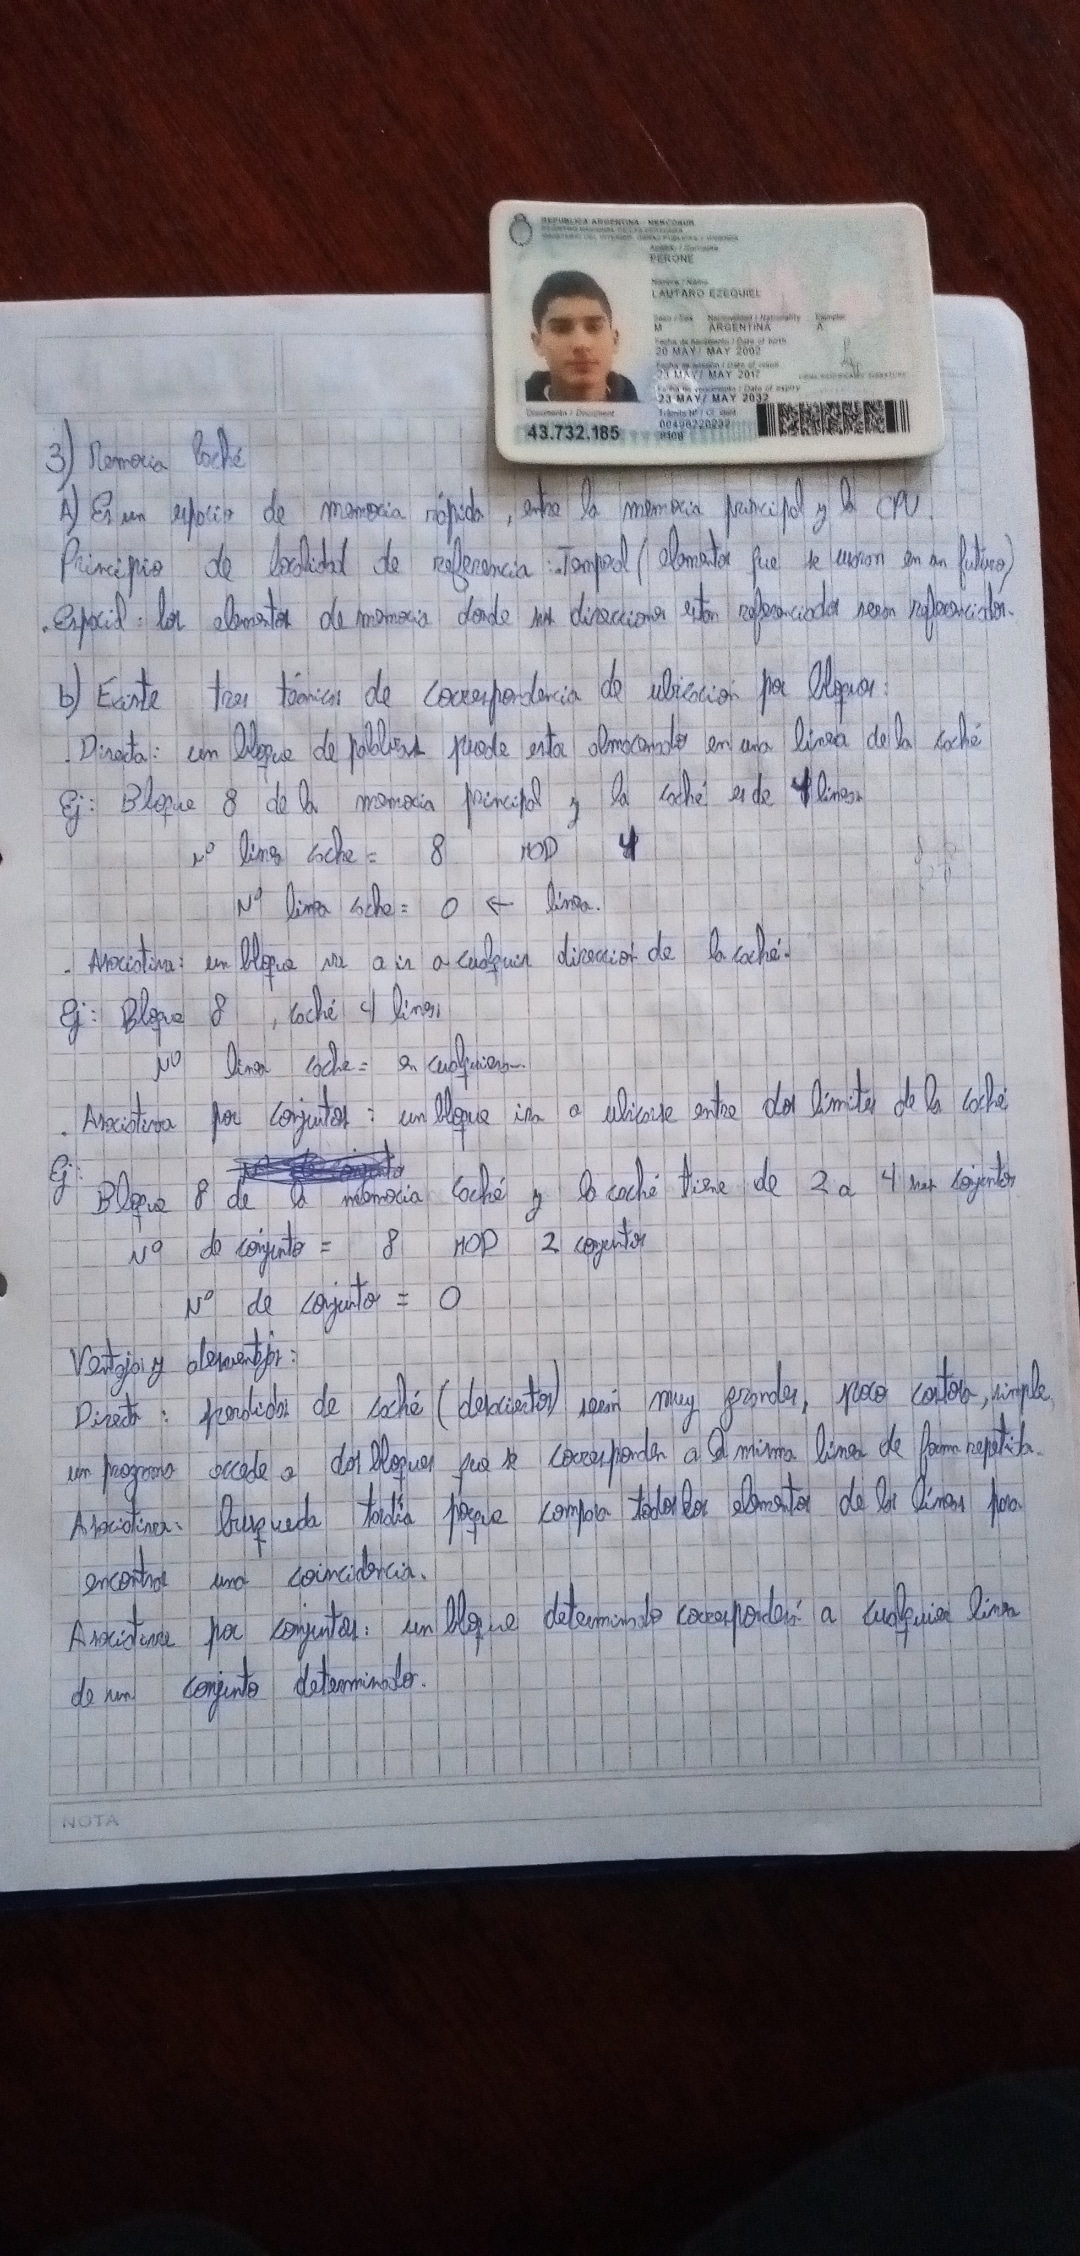 REPUBLICA ARGENTINA - MERCOSUR
Apellido / Surname
PERONE
Nombre / Name
LAUTARO EZEQUIEL
Sexo / Sex Nacionalidad / Nationality Ejemplar
M ARGENTINA A
Fecha de nacimiento / Date of birth
20 MAY/ MAY 2002
Fecha de emisión / Date of issue
23 MAY/ MAY 2017
Fecha de vencimiento / Date of expiry
23 MAY/ MAY 2032
Documento / Document Trámite Nº / Of. ident.
43.732.185
3) Memoria Caché
A) Es un espacio de memoria rápida, entre la memoria principal y la CPU.
Principio de localidad de referencia: Temporal (elementos que se usaron en un futuro)
. Espacial: los elementos de memoria donde sus direcciones están referenciados seran referenciados.
b) Existe tres técnicas de correspondencia de ubicación por bloques:
. Directa: un bloque de palabras puede esta almacenado en una linea de la caché
Ej: Bloque 8 de la memoria principal y la caché es de 4 lineas
Nº linea cache = 8 MOD 4
Nº linea cache = 0 ← linea.
. Asociativa: un bloque va a ir a cualquier dirección de la caché.
Ej: Bloque 8, caché 4 lineas
Nº linea cache = a cualquiera
. Asociativa por conjuntos: un bloque ira a ubicarse entre dos limites de la caché
Ej:
Bloque 8 de la memoria caché y la caché tiene de 2 a 4 conjuntos
Nº de conjunto = 8 MOD 2 conjuntos
Nº de conjunto = 0
Ventajas y desventajas:
Directa: perdidas de caché (desaciertos) serán muy grandes, poco costosa, simple,
un programa accede a dos bloques que se corresponden a la misma linea de forma repetida.
Asociativa: busqueda tardía porque compara todos los elementos de las lineas para
encontrar una coincidencia.
Asociativa por conjuntos: un bloque determinado corresponderá a cualquier linea
de un conjunto determinado.
NOTA